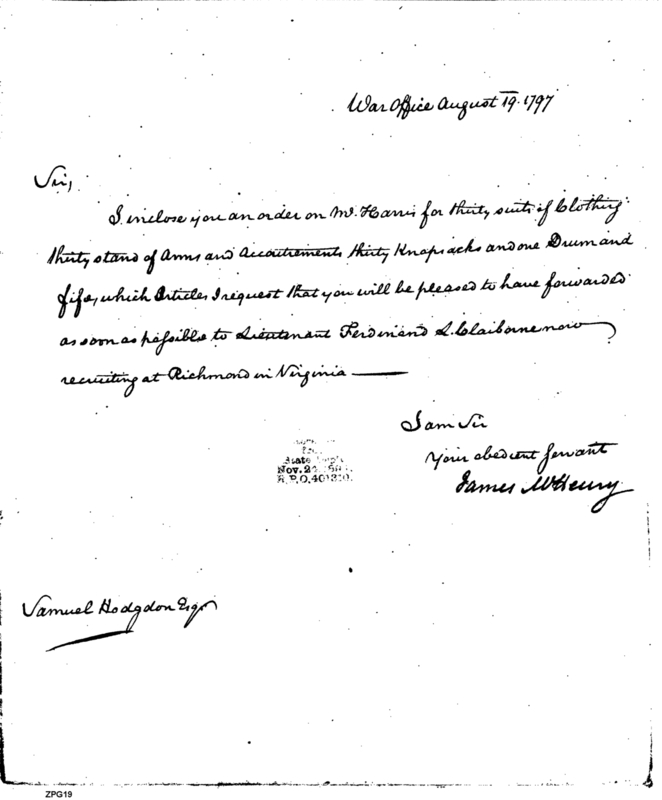 War Office August 19. 1797
Sir,
I inclose you an order on Mr. Harris for thirty suits of Clothing
thirty stand of Arms and Accoutrements thirty Knapsacks and one Drum and
fife, which Articles I request that you will be pleased to have forwarded
as soon as possible to Lieutenant Ferdinand L. Claiborne now
recruiting at Richmond in Virginia
I am Sir
Your obedient servant
James McHenry
State
Nov. 2
R.P.O.
Samuel Hodgdon Esqr
ZPG19